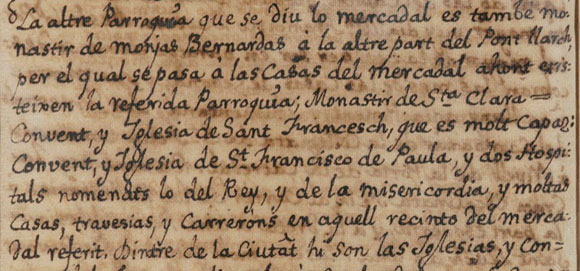 La altre Parroquia que se diu lo mercadal es tambe mo-
nastir de monjas Bernardas á la altre part del Pont March,
per el qual se pasa à las Casas del mercadal ahont exis-
teixen la referida Parroquia; Monastir de Sta Clara =
Convent, y Iglesia de Sant Francesch, que es molt Capaz:
Convent, y Iglesia de St. Francisco de Paula, y dos Hospi-
tals nomenats lo del Rey, y de la misericordia, y moltas
Casas, travesias, y Carrerons en aquell recinto del merca-
dal referit. Dintre de la Ciutat hi son las Iglesias, y Con=